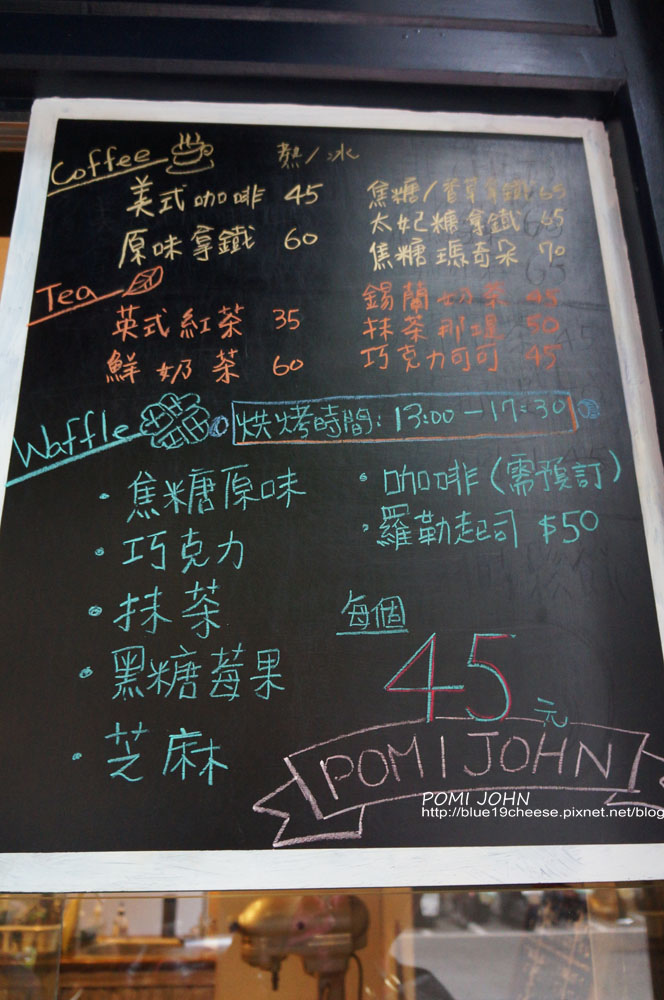 Coffee 熱/冰
美式咖啡 45
原味拿鐵 60
焦糖/香草拿鐵 65
太妃糖拿鐵 65
焦糖瑪奇朵 70
Tea
英式紅茶 35
鮮奶茶 60
錫蘭奶茶 45
抹茶那堤 50
巧克力可可 45
Waffle 烘烤時間: 13:00-17:30
·焦糖原味
·巧克力
·抹茶
·黑糖莓果
·芝麻
·咖啡(需預訂)
·羅勒起司 $50
每個
45元
POMI JOHN
POMI JOHN
http://blue19cheese.pixnet.net/blog